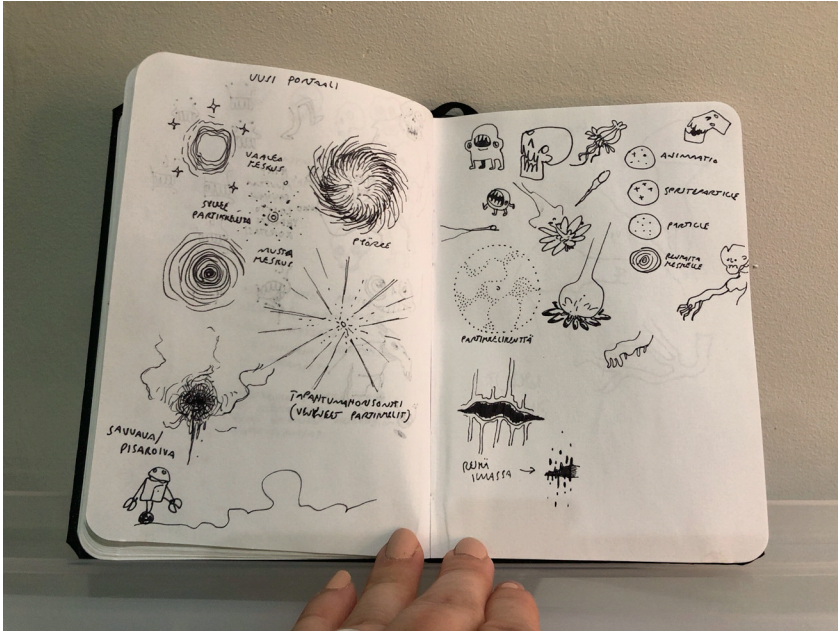 UUSI PORTAALI
VAALEA
KESKUS
SYLKEE
PARTIKKELEITA
PYÖRRE
MUSTA
KESKUS
TAPAHTUMAHORISONTTI
(VENYNEET PARTIKKELIT)
SAVUAVA/
PISAROIVA
ANIMAATIO
SPRITEPARTICLE
PARTICLE
REUNALTA
KESKELLE
PARTIKKELIKENTTÄ
REIKÄ
ILMASSA